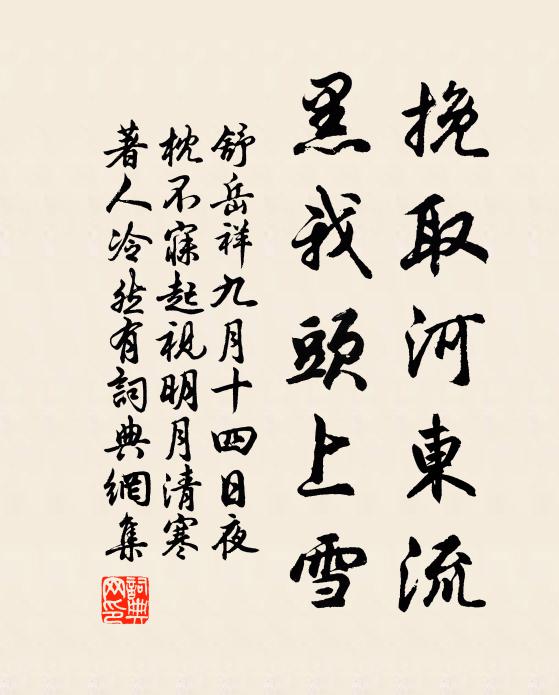 挽取河東流
黑我頭上雪
舒岳祥九月十四日夜
枕不寐起視明月清寒
著人冷然有詞典網集
詞典网印